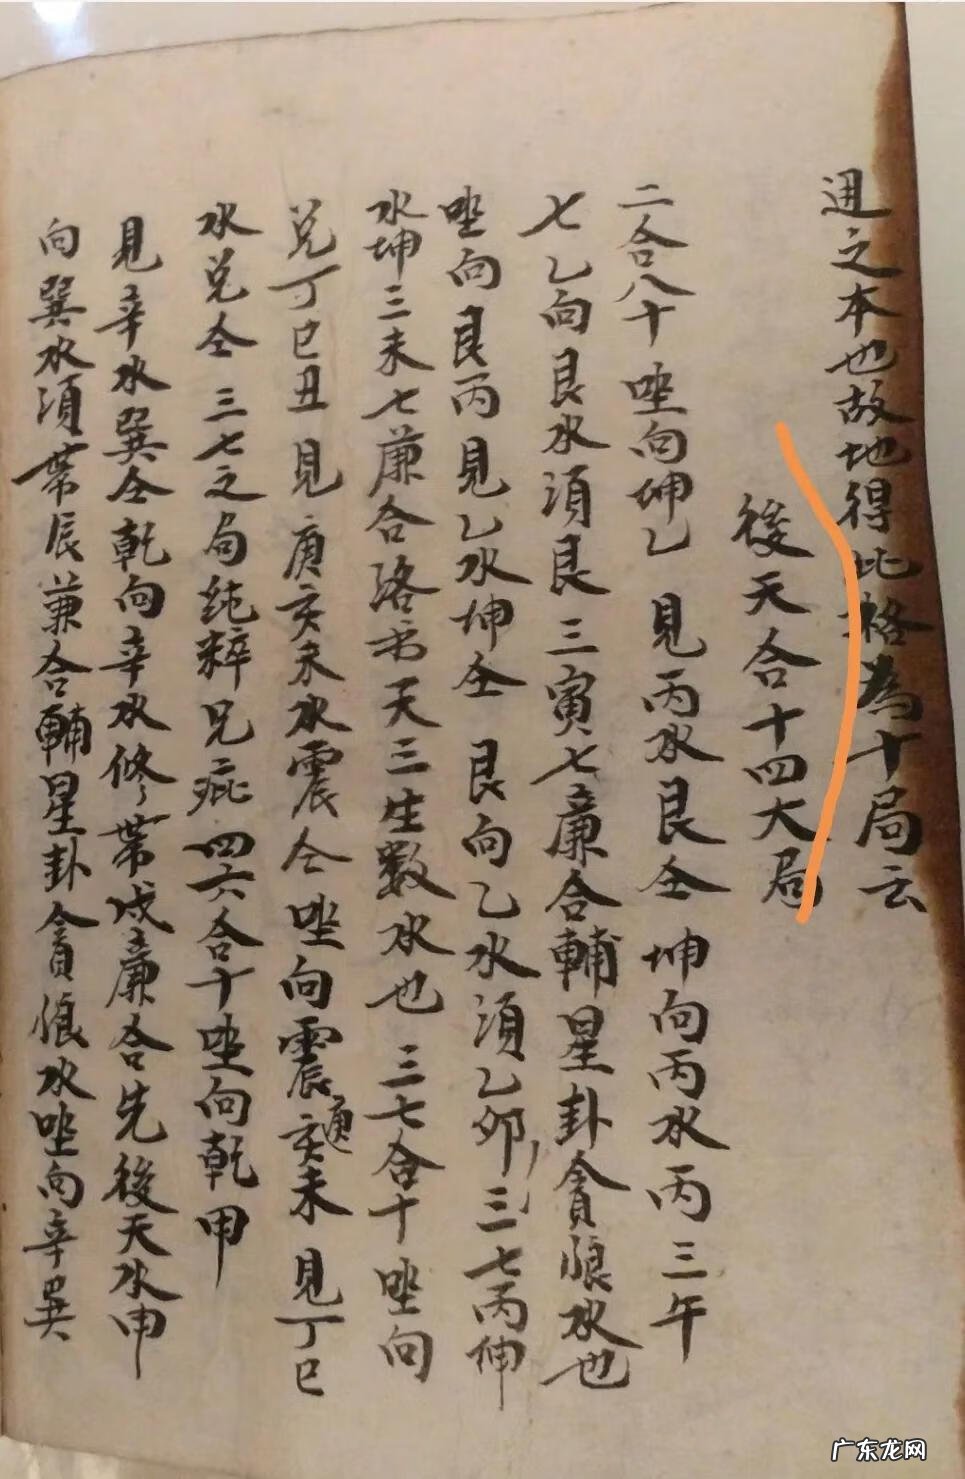 之本也故地得此格為十局云
後天合十四大局
二合八十坐向坤乙 見丙水艮仝 坤向丙水丙三午
七乙向艮水須艮三寅七廉合輔星卦貪狼水也
坐向艮丙見乙水坤仝 艮向乙水須乙卯三七丙坤
水坤三未七廉合洛书天三生數水也 三七合十坐向
兌丁巳丑見庚亥未水震仝坐向震庚亥未見丁巳
水兌仝三七之局純粹兄疵四六合十坐向乾甲
見辛水巽仝乾向辛水修帶戌廉合先後天水申
向巽水須帶辰兼合輔星卦貪狼水坐向辛巽
广东龙网